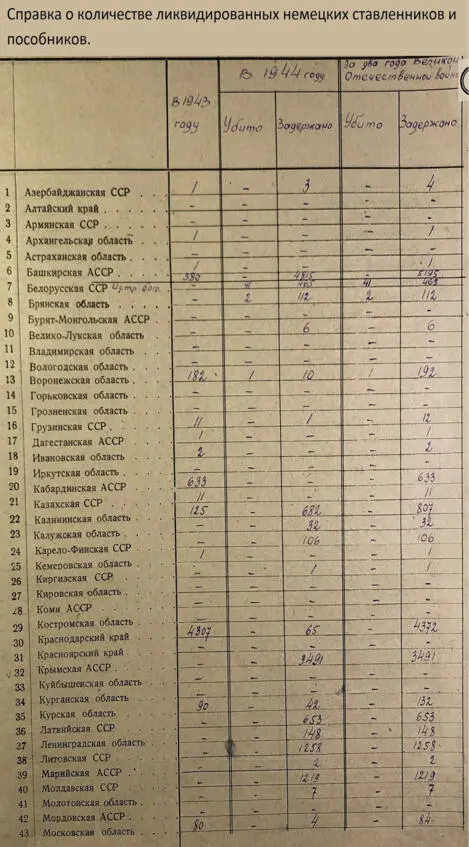 Справка о количестве ликвидированных немецких ставленников и
пособников.
В 1943 году
В 1944 году
За два года Великой Отечественной войн
Убито Задержано Убито Задержано
1 Азербайджанская ССР . . . 1 - 3 - 4
2 Алтайский край . . . . . . - - - - -
3 Армянская ССР . . . . . - - - - -
4 Архангельская область . . . 1 - - - 1
5 Астраханская область . . . - - - - -
6 Башкирская АССР . . . . 1 - - - 1
380 - 4815 - 5195
7 Белорусская ССР - 41 465 41 465
8 Брянская область . . . . - 2 112 2 112
9 Бурят-Монгольская АССР . . - - - - -
10 Велико-Лукская область . . . - - 6 - 6
11 Владимирская область . . . - - - - -
12 Вологодская область . . . . - - - - -
13 Воронежская область . . . . 182 1 10 1 192
14 Горьковская область . . . . - - - - -
15 Грозненская область . . . . - - - - -
16 Грузинская ССР . . . . . 11 - 1 - 12
17 Дагестанская АССР . . . . 1 - - - 1
18 Ивановская область . . . . 2 - - - 2
19 Иркутская область . . . . - - - - -
20 Кабардинская АССР . . . . 633 - - - 633
21 Казахская ССР . . . . . 11 - - - 11
22 Калининская область . . . . 125 - 682 - 807
23 Калужская область . . . . - - 32 - 32
24 Карело-Финская ССР . . . . - - 106 - 106
25 Кемеровская область . . . . 1 - - - 1
26 Киргизская ССР . . . . . - - 1 - 1
27 Кировская область . . . . - - - - -
28 Коми АССР . . . . . . - - - - -
29 Костромская область . . . . - - - - -
30 Краснодарский край . . . . 4307 - 65 - 4372
31 Красноярский край . . . . - - - - -
32 Крымская АССР . . . . . - - 3491 - 3491
33 Куйбышевская область . . . - - - - -
34 Курганская область . . . . - - - - -
35 Курская область . . . . . 90 - 42 - 132
36 Латвийская ССР . . . . . - - 653 - 653
37 Ленинградская область . . . - - 148 - 148
38 Литовская ССР . . . . . - - 1258 - 1258
39 Марийская АССР . . . . . - - 2 - 2
40 Молдавская ССР . . . . . - - 1219 - 1219
41 Молотовская область . . . . - - 7 - 7
42 Мордовская АССР . . . . - - - - -
43 Московская область . . . . 80 - 4 - 84